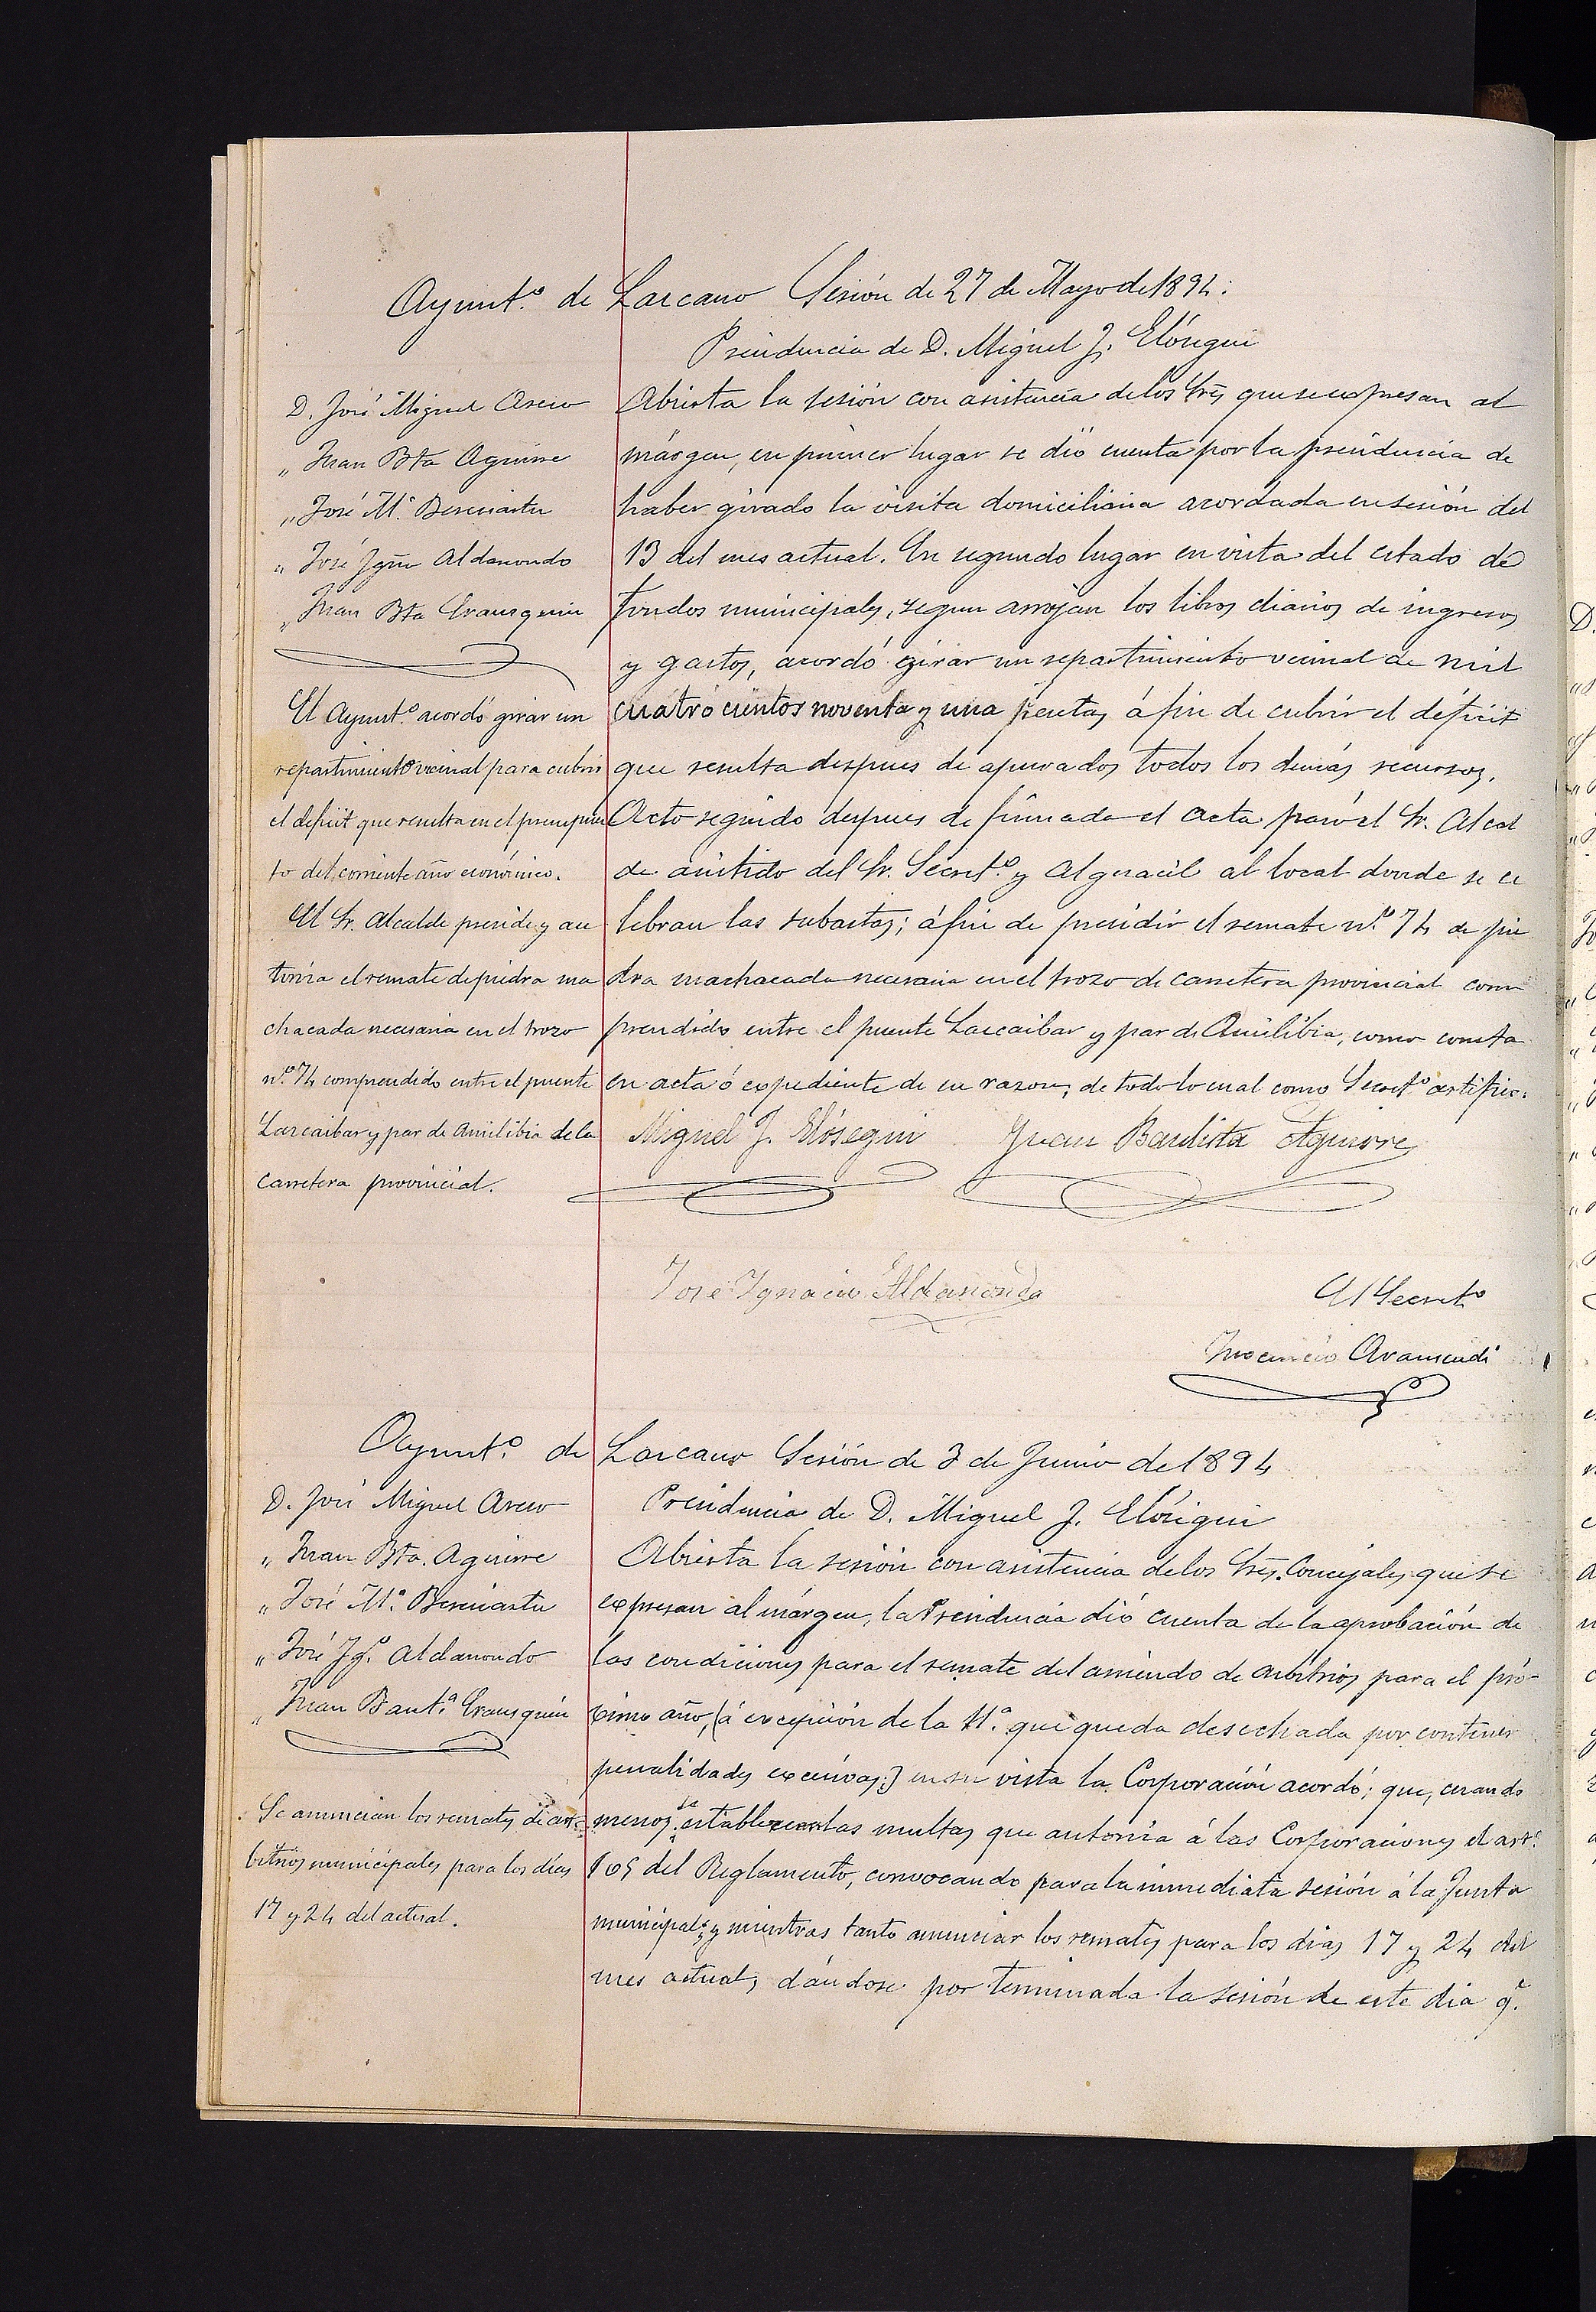 Ayunt.º de Lazcano Sesión de 27 de Mayo de 1894:
Presidencia de D. Miguel J. Elósegui
D. José Miguel Aseco
„ Juan Bta Aguirre
„ José M.ª Berasiartu
„ José Ygn.º Aldasondo
„ Juan Bta Erausquin
El Ayunt.º acordó girar un
repartimiento vecinal para cubrir
el deficit que resulta en el presupues
to del corriente año económico.
El Sr. Alcalde preside y au
toriza el remate de piedra ma
chacada necesaria en el trozo
n.º 74 comprendido entre el puente
Lazcaibar y par de Amilibia de la
carretera provincial.
Abierta la sesión con asistencia de los Srs que se expresan al
márgen, en primer lugar se dió cuenta por la presidencia de
haber girado la visita domiciliaria acordada en sesión del
13 del mes actual. En segundo lugar en vista del estado de
fondos municipales, segun arrojan los libros diarios de ingresos
y gastos, acordó girar un repartimiento vecinal de mil
cuatro cientos noventa y una pesetas, á fin de cubrir el déficit
que resulta despues de apurados todos los demás recursos.
Acto seguido despues de firmada el acta pasó el Sr. Alcal
de asistido del Sr. Secret.º y Alguacil al local donde se ce
lebran las subastas; á fin de presidir el remate n.º 74 de pie
dra machacada necesaria en el trozo de carretera provincial com
prendido entre el puente Lazcaibar y par de Amilibia, como consta
en acta ó expediente de su razon, de todo lo cual como Secret.º certifico.
Miguel J. Elósegui Juan Bautista Aguirre
José Ygnacio Aldasondo
El Secret.º
Inocencio Aramendi
Ayunt.º de Lazcano Sesión de 3 de Junio de 1894
Presidencia de D. Miguel J. Elósegui
D. José Miguel Aseco
„ Juan Bta. Aguirre
„ José M.ª Berasiartu
„ José Yg.º Aldasondo
„ Juan Baut.ª Erausquin
Se anuncian los remates de ar-
bitrios municipales para los días
17 y 24 del actual.
Abierta la sesión con asistencia de los Srs. Concejales que se
expresan al márgen, la Presidencia dió cuenta de la aprobación de
las condiciones para el remate del arriendo de arbitrios para el pró-
ximo año, (á excepción de la 11.ª que queda desechada por contener
penalidades excesivas;) en su vista la Corporación acordó; que, cuando
menos, se establezcan las multas que autoriza á las Corporaciones el art.º
165 del Reglamento, convocando para la inmediata sesión á la Junta
municipal; y mientras tanto anunciar los remates para los dias 17 y 24 del
mes actual, dándose por terminada la sesión de este dia q.e